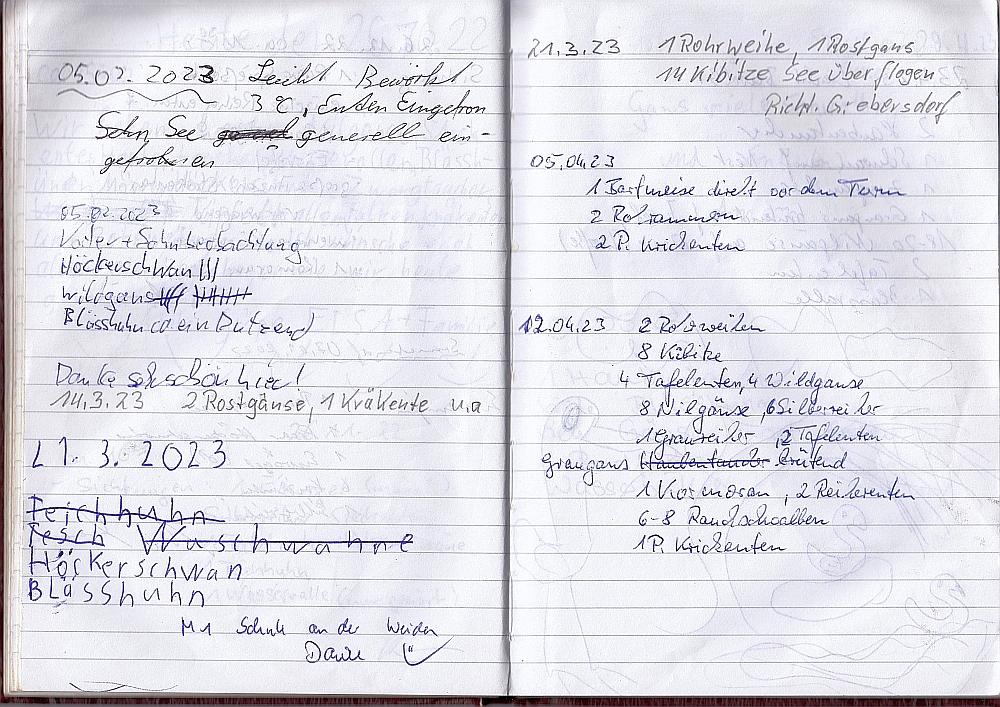 05.02.2023 Leicht Bewörkt
3°C, Enten Eingetron
Sehn, See generell ein-
gefrohren
05.02.2023
Vater + Sohn beobachtung
Höckerschwan III
wildgans
Blässhuhn ca ein Dutzend
Danke sehr schön hier!
14.3.23 2 Rostgänse, 1 Kräkente u.a
21.3.2023
Teichhuhn
Höckerschwan
Blässhuhn
M1 Schule an der Weiden
Danke
21.3.23 1 Rohrweihe, 1 Rostgans
14 Kibitze See überflogen
Richt. Griebersdorf
05.04.23
1 Bartmeise direkt vor dem Turm
2 Rohrammern
2 P. Krickenten
12.04.23 2 Rohrweihen
8 Kibitze
4 Tafelenten, 4 Wildgänse
8 Nilgänse, 6 Silberreiher
1 Graureiher, 2 Tafelenten
Graugans Haubentaucher brütend
1 Kormoran, 2 Reiherenten
6-8 Rauchschwalben
1 P. Krickenten